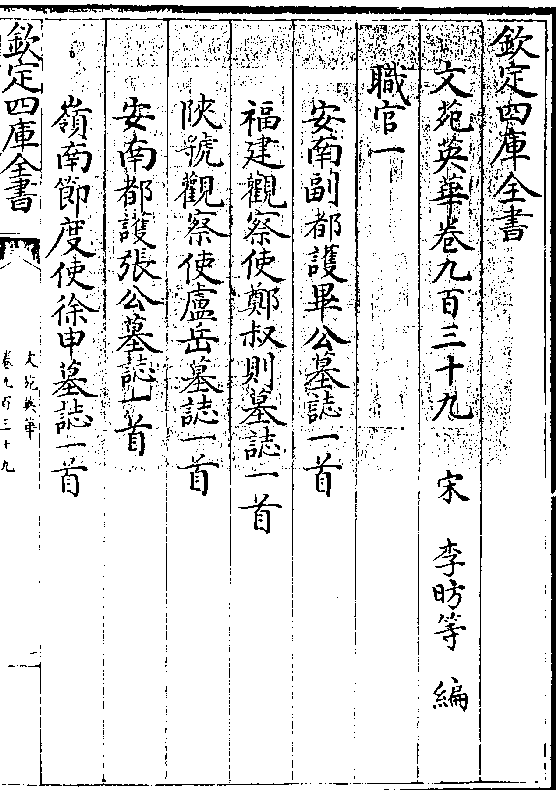 欽定四庫全書
文苑英華卷九百三十九 宋 李昉等 編
職官一
安南副都護畢公墓誌一首
福建觀察使鄭叔則墓誌一首
陜虢觀察使盧岳墓誌一首
安南都護張公墓誌一首
嶺南節度使徐申墓誌一首
欽定四庫全書
文苑英華
卷九百三十九
一